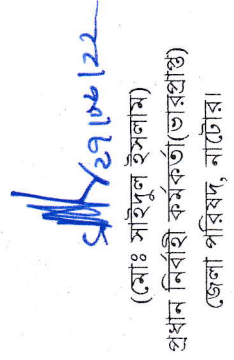 ২৭/০৬/২২
(মোঃ সাইদুল ইসলাম)
প্রধান নির্বাহী কর্মকর্তা(ভারপ্রাপ্ত)
জেলা পরিষদ, নাটোর।